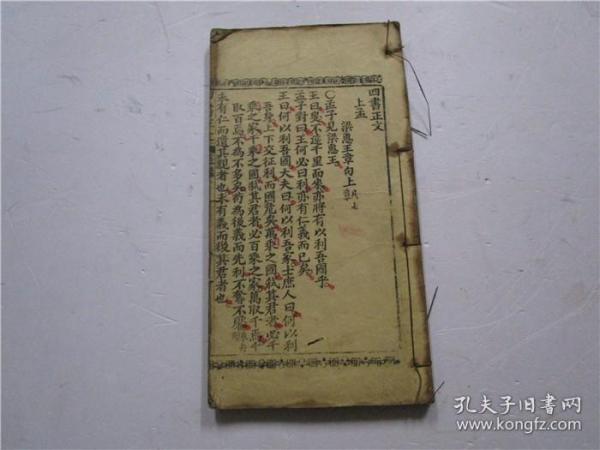 四書正文
上孟
梁惠王章句上
○孟子見梁惠王
王曰叟不遠千里而來亦將有以利吾國乎
孟子對曰王何必曰利亦有仁義而已矣
王曰何以利吾國大夫曰何以利吾家士庶人曰何以利
吾身上下交征利而國危矣萬乘之國弒其君者必千
乘之家千乘之國弒其君者必百乘之家萬取千焉千
取百焉不為不多矣苟為後義而先利不奪不饜
未有仁而遺其親者也未有義而後其君者也
孔夫子旧书网
www.kongfz.com